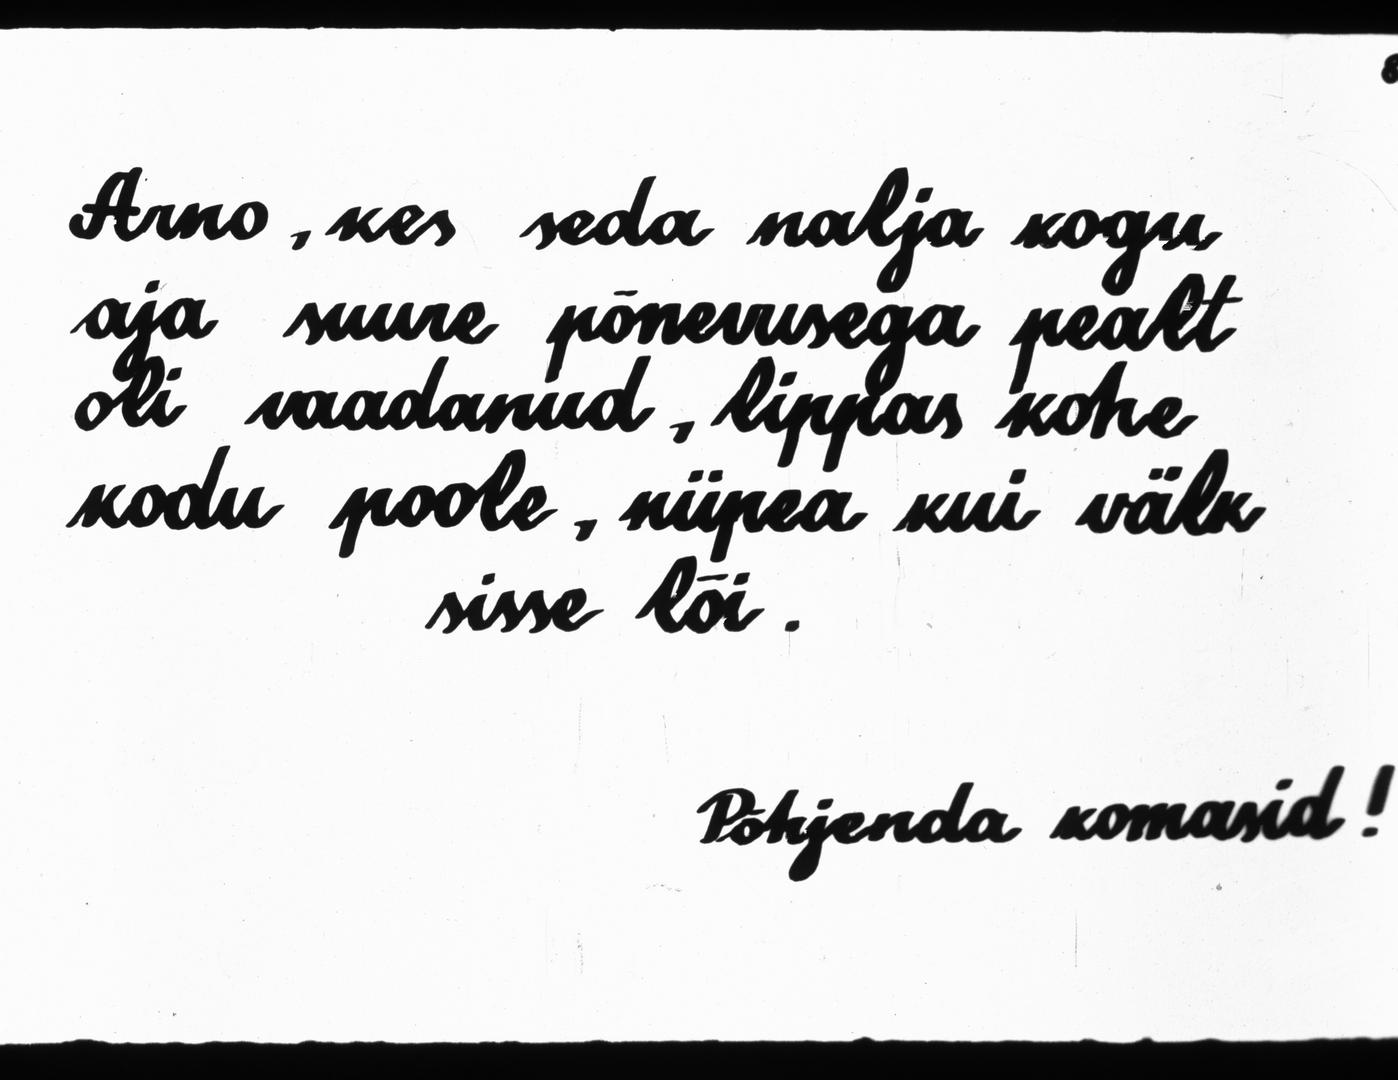 8
Arno, kes seda nalja kogu
aja suure põnevusega pealt
oli vaadanud, lippas kohe
kodu poole, niipea kui välk
sisse lõi.
Põhjenda komasid!